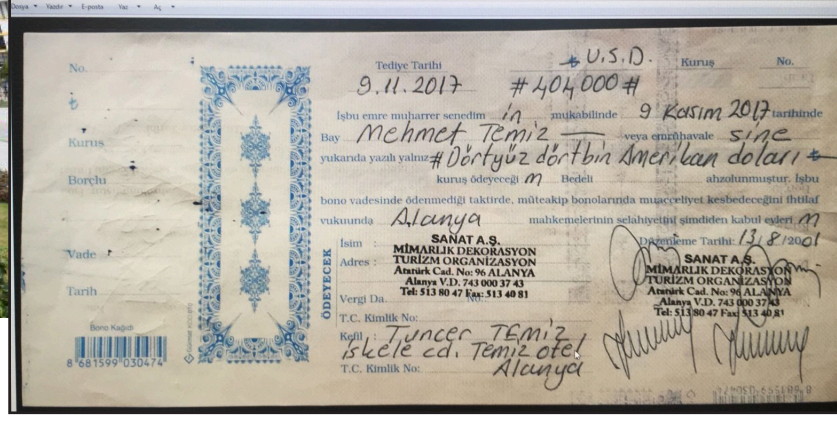 Dosya Yazdır E-posta Yaz Aç
No. Tediye Tarihi ₺ U.S.D. Kuruş No.
₺ 9.11.2017 # 404,000 #
İşbu emre muharrer senedim in mukabilinde 9 Kasım 2017 tarihinde
Kuruş Bay Mehmet Temiz — veya emrühavale sine
yukarıda yazılı yalnız # Dörtyüz dörtbin Amerikan doları ₺
Borçlu kuruş ödeyeceğ m Bedeli ahzolunmuştur. İşbu
bono vadesinde ödenmediği taktirde, müteakip bonolarında muacceliyet kesbedeceğini ihtilaf
vukuunda Alanya mahkemelerinin selahiyetini şimdiden kabul eyleri m
Düzenleme Tarihi: 13/8/2001
ÖDEYECEK
İsim :
Adres :
SANAT A.Ş.
MİMARLIK DEKORASYON
TURİZM ORGANIZASYON
Atatürk Cad. No: 96 ALANYA
Alanya V.D. 743 000 37 43
Tel: 513 80 47 Fax: 513 40 81
SANAT A.Ş.
MİMARLIK DEKORASYON
TURİZM ORGANIZASYON
Atatürk Cad. No: 96 ALANYA
Alanya V.D. 743 000 37 43
Tel: 513 80 47 Fax: 513 40 81
Vade
Tarih
Vergi Da. No:
T.C. Kimlik No:
Kefil : Tuncer TEMİZ
iskele cd. Temiz otel
T.C. Kimlik No: Alanya
Bono Kağıdı
8 681599 030474